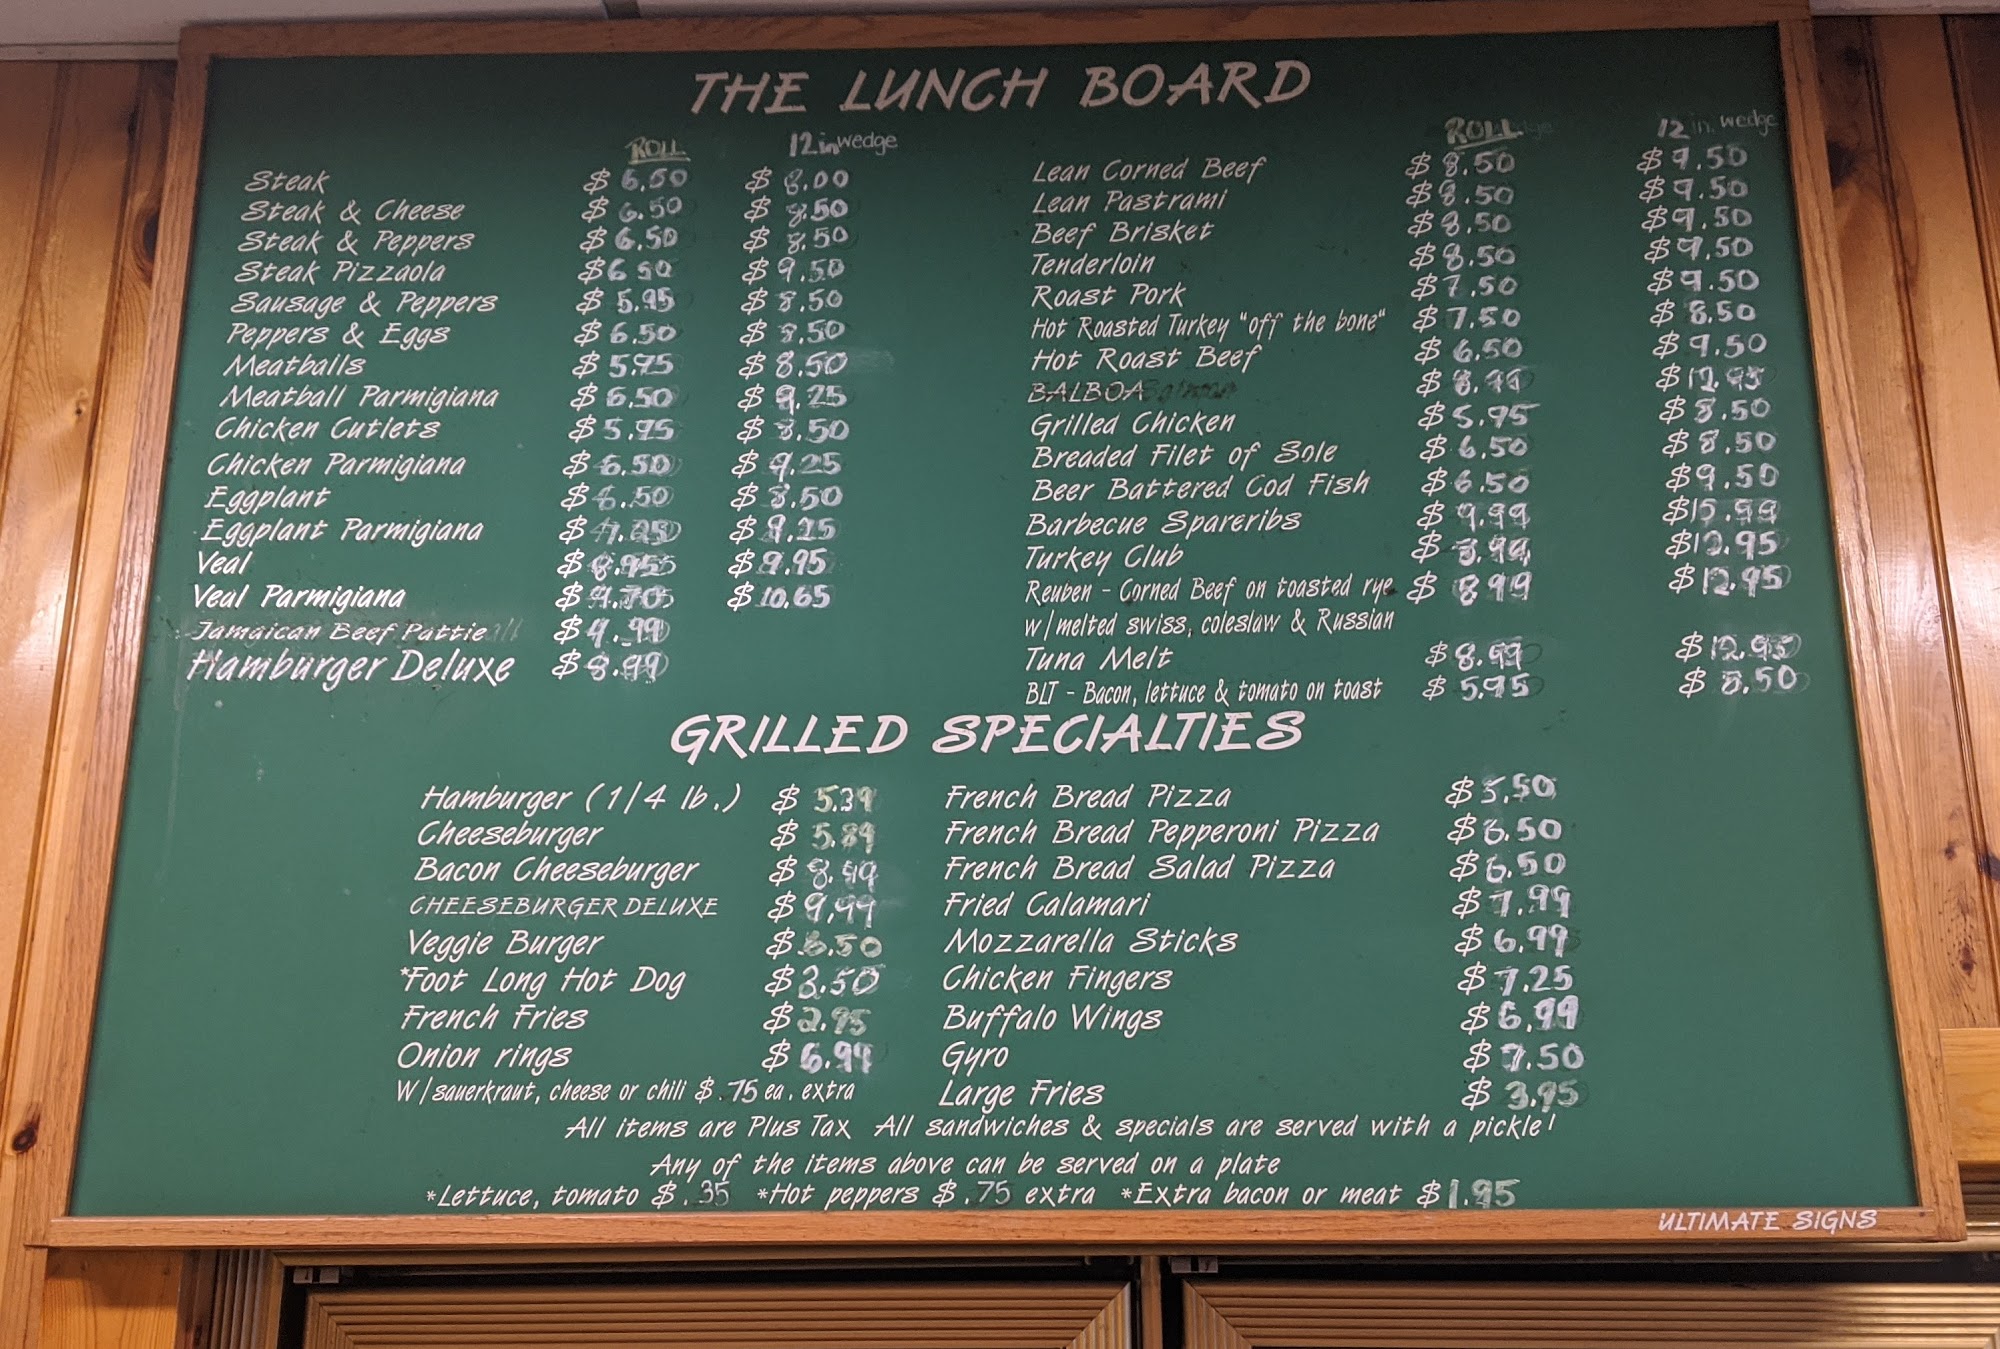 THE LUNCH BOARD
ROLL 12 in wedge
Steak $ 6.50 $ 8.00
Steak & Cheese $ 6.50 $ 8.50
Steak & Peppers $ 6.50 $ 8.50
Steak Pizzaola $6 50 $ 9.50
Sausage & Peppers $ 5.95 $ 8.50
Peppers & Eggs $ 6.50 $ 8.50
Meatballs $ 5.95 $ 8.50
Meatball Parmigiana $ 6.50 $ 9.25
Chicken Cutlets $ 5.95 $ 8.50
Chicken Parmigiana $ 6.50 $ 9.25
Eggplant $ 6.50 $ 8.50
Eggplant Parmigiana $ 7.25 $ 9.25
Veal $ 8.95 $ 9.95
Veal Parmigiana $ 9.70 $ 10.65
Jamaican Beef Pattie $ 4.99
Hamburger Deluxe $ 8.99
ROLL 12 in. wedge
Lean Corned Beef $ 8.50 $ 9.50
Lean Pastrami $ 8.50 $ 9.50
Beef Brisket $ 8.50 $ 9.50
Tenderloin $ 8.50 $ 9.50
Roast Pork $ 7.50 $ 9.50
Hot Roasted Turkey "off the bone" $ 7.50 $ 8.50
Hot Roast Beef $ 6.50 $ 9.50
BALBOA $ 8.99 $ 12.95
Grilled Chicken $ 5.95 $ 8.50
Breaded Filet of Sole $ 6.50 $ 8.50
Beer Battered Cod Fish $ 6.50 $ 9.50
Barbecue Spareribs $ 9.99 $15.99
Turkey Club $ 8.99 $12.95
Reuben - Corned Beef on toasted rye $ 8.99 $ 12.95
w/melted swiss, coleslaw & Russian
Tuna Melt $ 8.99 $ 12.95
BLT - Bacon, lettuce & tomato on toast $ 5.95 $ 8.50
GRILLED SPECIALTIES
Hamburger (1/4 lb.) $ 5.39
Cheeseburger $ 5.89
Bacon Cheeseburger $ 8.49
CHEESEBURGER DELUXE $ 9.99
Veggie Burger $ 6.50
*Foot Long Hot Dog $ 3.50
French Fries $ 2.95
Onion rings $ 6.99
W/sauerkraut, cheese or chili $ .75 ea. extra
French Bread Pizza $ 5.50
French Bread Pepperoni Pizza $ 6.50
French Bread Salad Pizza $ 6.50
Fried Calamari $ 7.99
Mozzarella Sticks $ 6.99
Chicken Fingers $ 7.25
Buffalo Wings $ 6.99
Gyro $ 7.50
Large Fries $ 3.95
All items are Plus Tax All sandwiches & specials are served with a pickle!
Any of the items above can be served on a plate
*Lettuce, tomato $ .35 *Hot peppers $ .75 extra *Extra bacon or meat $1.95
ULTIMATE SIGNS